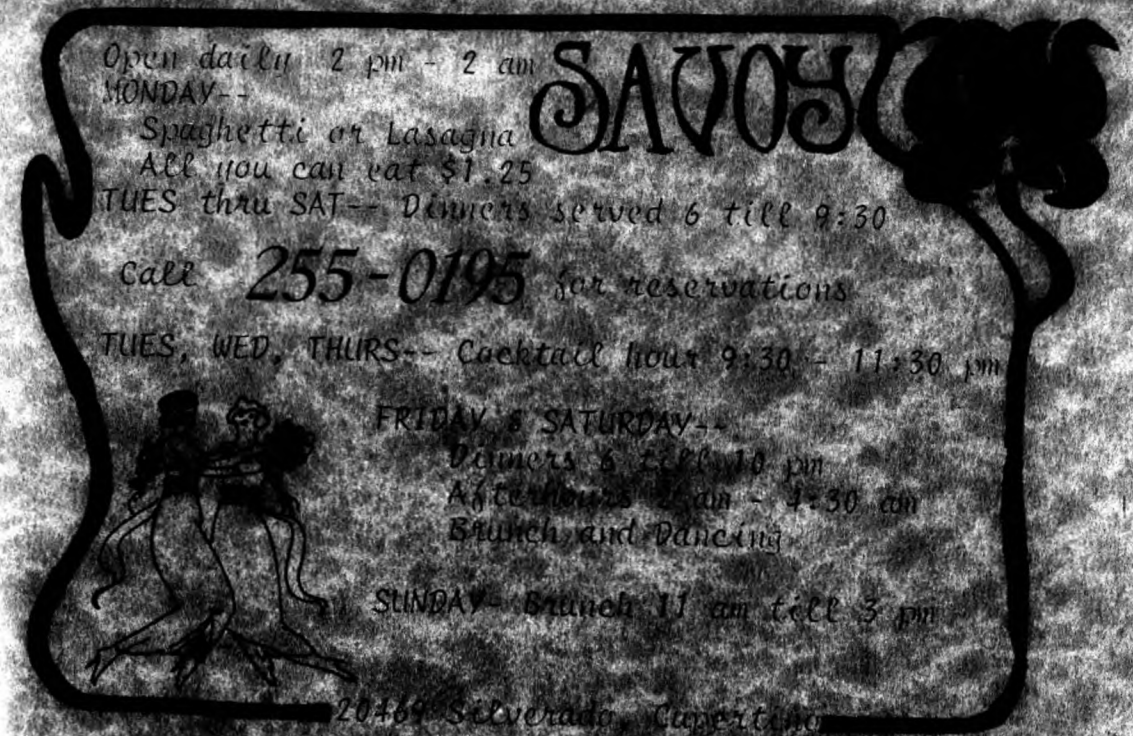 SAVOY
Open daily 2 pm - 2 am
MONDAY--
Spaghetti or Lasagna
All you can eat $1.25
TUES thru SAT-- Dinners served 6 till 9:30
Call 255-0195 for reservations
TUES, WED, THURS-- Cocktail hour 9:30 - 11:30 pm
FRIDAY & SATURDAY--
Dinners 6 till 10 pm
Afterhours 2 am - 4:30 am
Brunch and Dancing
SUNDAY- Brunch 11 am till 3 pm
20469 Silverado, Cupertino